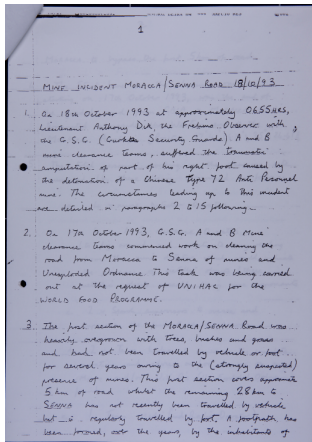 1
MINE INCIDENT MORACCA/SENNA ROAD 18/10/93
1. On 18th October 1993 at approximately 0655HRS,
Lieutenant Anthony Dick, the Frelimo Observer with
the G.S.G. (Gurkha Security Guards) A and B
mine clearance teams, suffered the traumatic
amputation of part of his right foot caused by
the detonation of a Chinese Type 72 Anti Personnel
mine. The circumstances leading up to this incident
are detailed in paragraphs 2 to 15 following.
2. On 17th October 1993, G.S.G. A and B Mine
clearance teams commenced work on clearing the
road from Moracca to Senna of mines and
Unexploded Ordnance. This task was being carried
out at the request of UNIHAC for the
WORLD FOOD PROGRAMME.
3. The first section of the MORACCA/SENNA Road was
heavily overgrown with trees, bushes and grass
and had not been travelled by vehicle or foot
for several years owing to the (strongly suspected)
presence of mines. This first section covers approximate
5 km of road whilst the remaining 28km to
SENNA has not recently been travelled by vehicle,
but is regularly travelled by foot. A footpath has
been formed, over the years, by the inhabitants of